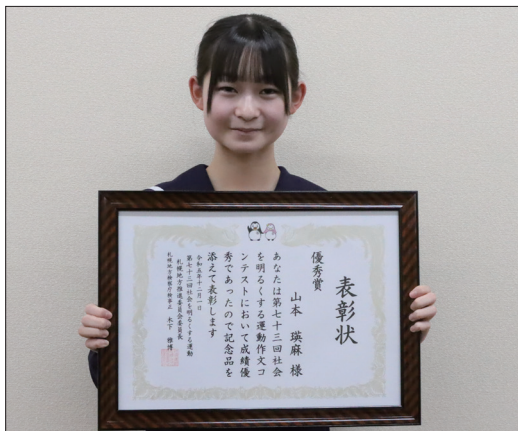 表彰状
優秀賞
山本 瑛麻 様
あなたは第七十三回社会
を明るくする運動作文コ
ンテストにおいて成績優
秀であったので記念品を
添えて表彰します
令和五年十二月一日
第七十三回社会を明るくする運動
札幌地方推進委員会委員長
札幌地方検察庁検事正 木下 雅博